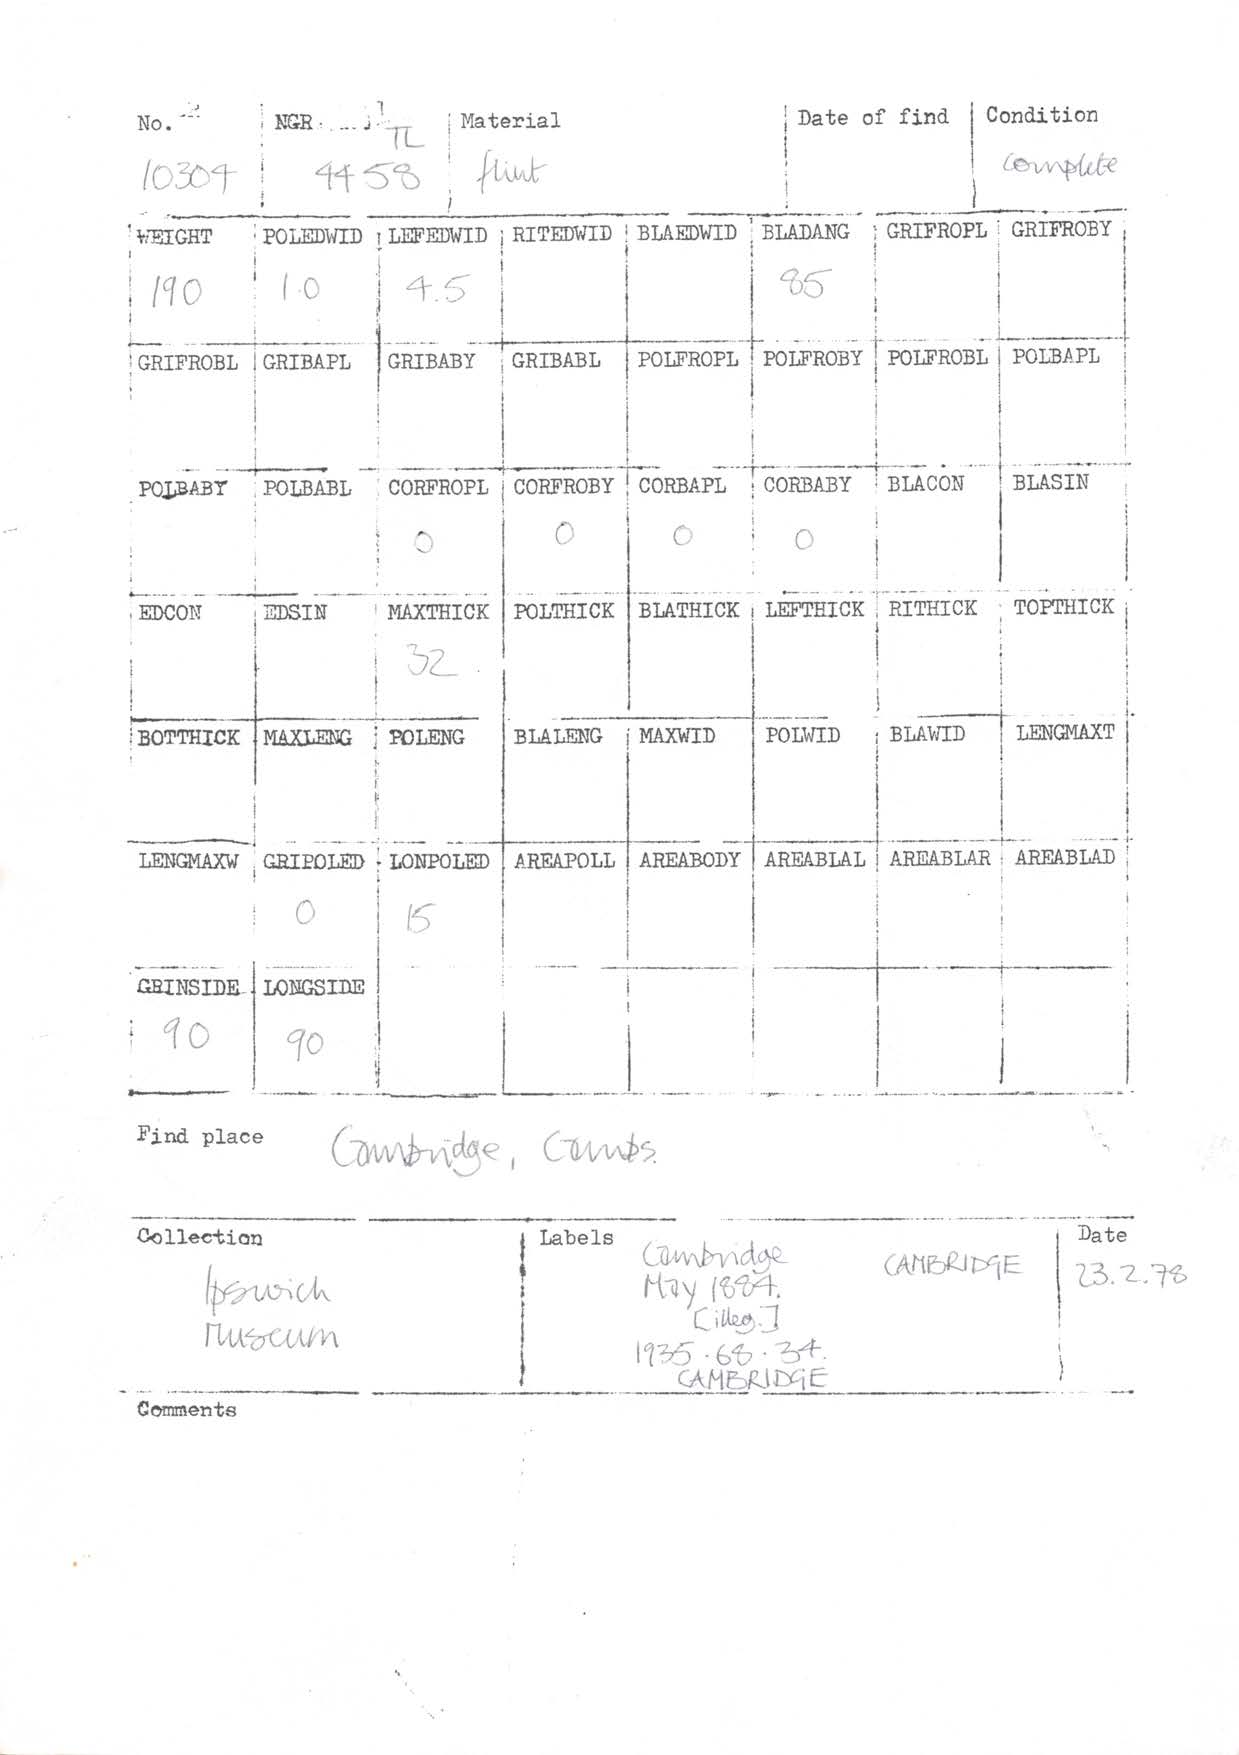 No. NGR Material Date of find Condition
10304 TL 4458 flint complete
WEIGHT POLEDWID LEFEDWID RITEDWID BLAEDWID BLADANG GRIFROPL GRIFROBY
190 1.0 4.5 85
GRIFROBL GRIBAPL GRIBABY GRIBABL POLFROPL POLFROBY POLFROBL POLBAPL
POLBABY POLBABL CORFROPL CORFROBY CORBAPL CORBABY BLACON BLASIN
0 0 0 0
EDCON EDSIN MAXTHICK POLTHICK BLATHICK LEFTHICK RITHICK TOPTHICK
32
BOTTHICK MAXLENG POLENG BLALENG MAXWID POLWID BLAWID LENGMAXT
LENGMAXW GRIPOLED LONPOLED AREAPOLL AREABODY AREABLAL AREABLAR AREABLAD
0 15
GRINSIDE LONGSIDE
90 90
Find place Cambridge, Cambs.
Collection Labels Date
Ipswich
Museum
Cambridge
May 1884.
[illeg.]
1935.68.34.
CAMBRIDGE
CAMBRIDGE
23.2.78
Comments